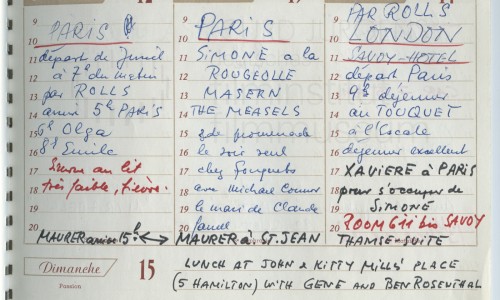 PARIS
départ de Jumil
à 7h du matin
par ROLLS
arrivé 5h PARIS
6h Olga
8h Emile
Simone au lit
très faible, fièvre.
MAURER arrive 15h.
PARIS
SIMONE a la
ROUGEOLLE
MASERN
THE MEASELS
2de promenade
le soir seul
chez Fouquets
avec Michael
le mari de Claude
MAURER à ST. JEAN
PAR ROLLS
LONDON
SAVOY-HOTEL
départ Paris
9h déjeuner
au TOUQUET
à l'Escale
déjeuner excellent
XAVIERE à PARIS
pour s'occuper de
SIMONE
ROOM 611 bis SAVOY
THAMSE-SUITE
9
10
11
12
13
14
15
16
17
18
19
20
9
10
11
12
13
14
15
16
17
18
19
20
9
10
11
12
13
14
15
16
17
18
19
20
Dimanche
15
Passion
LUNCH AT JOHN & KITTY MILLS' PLACE
(5 HAMILTON) WITH GENE AND BEN ROSENTHAL